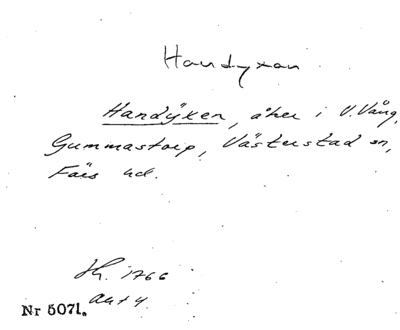 Handyxan
Handÿxen, åker i V. Vång,
Gummastorp, Västerstad sn,
Färs hd.
1766
akt 4
Nr 5071.